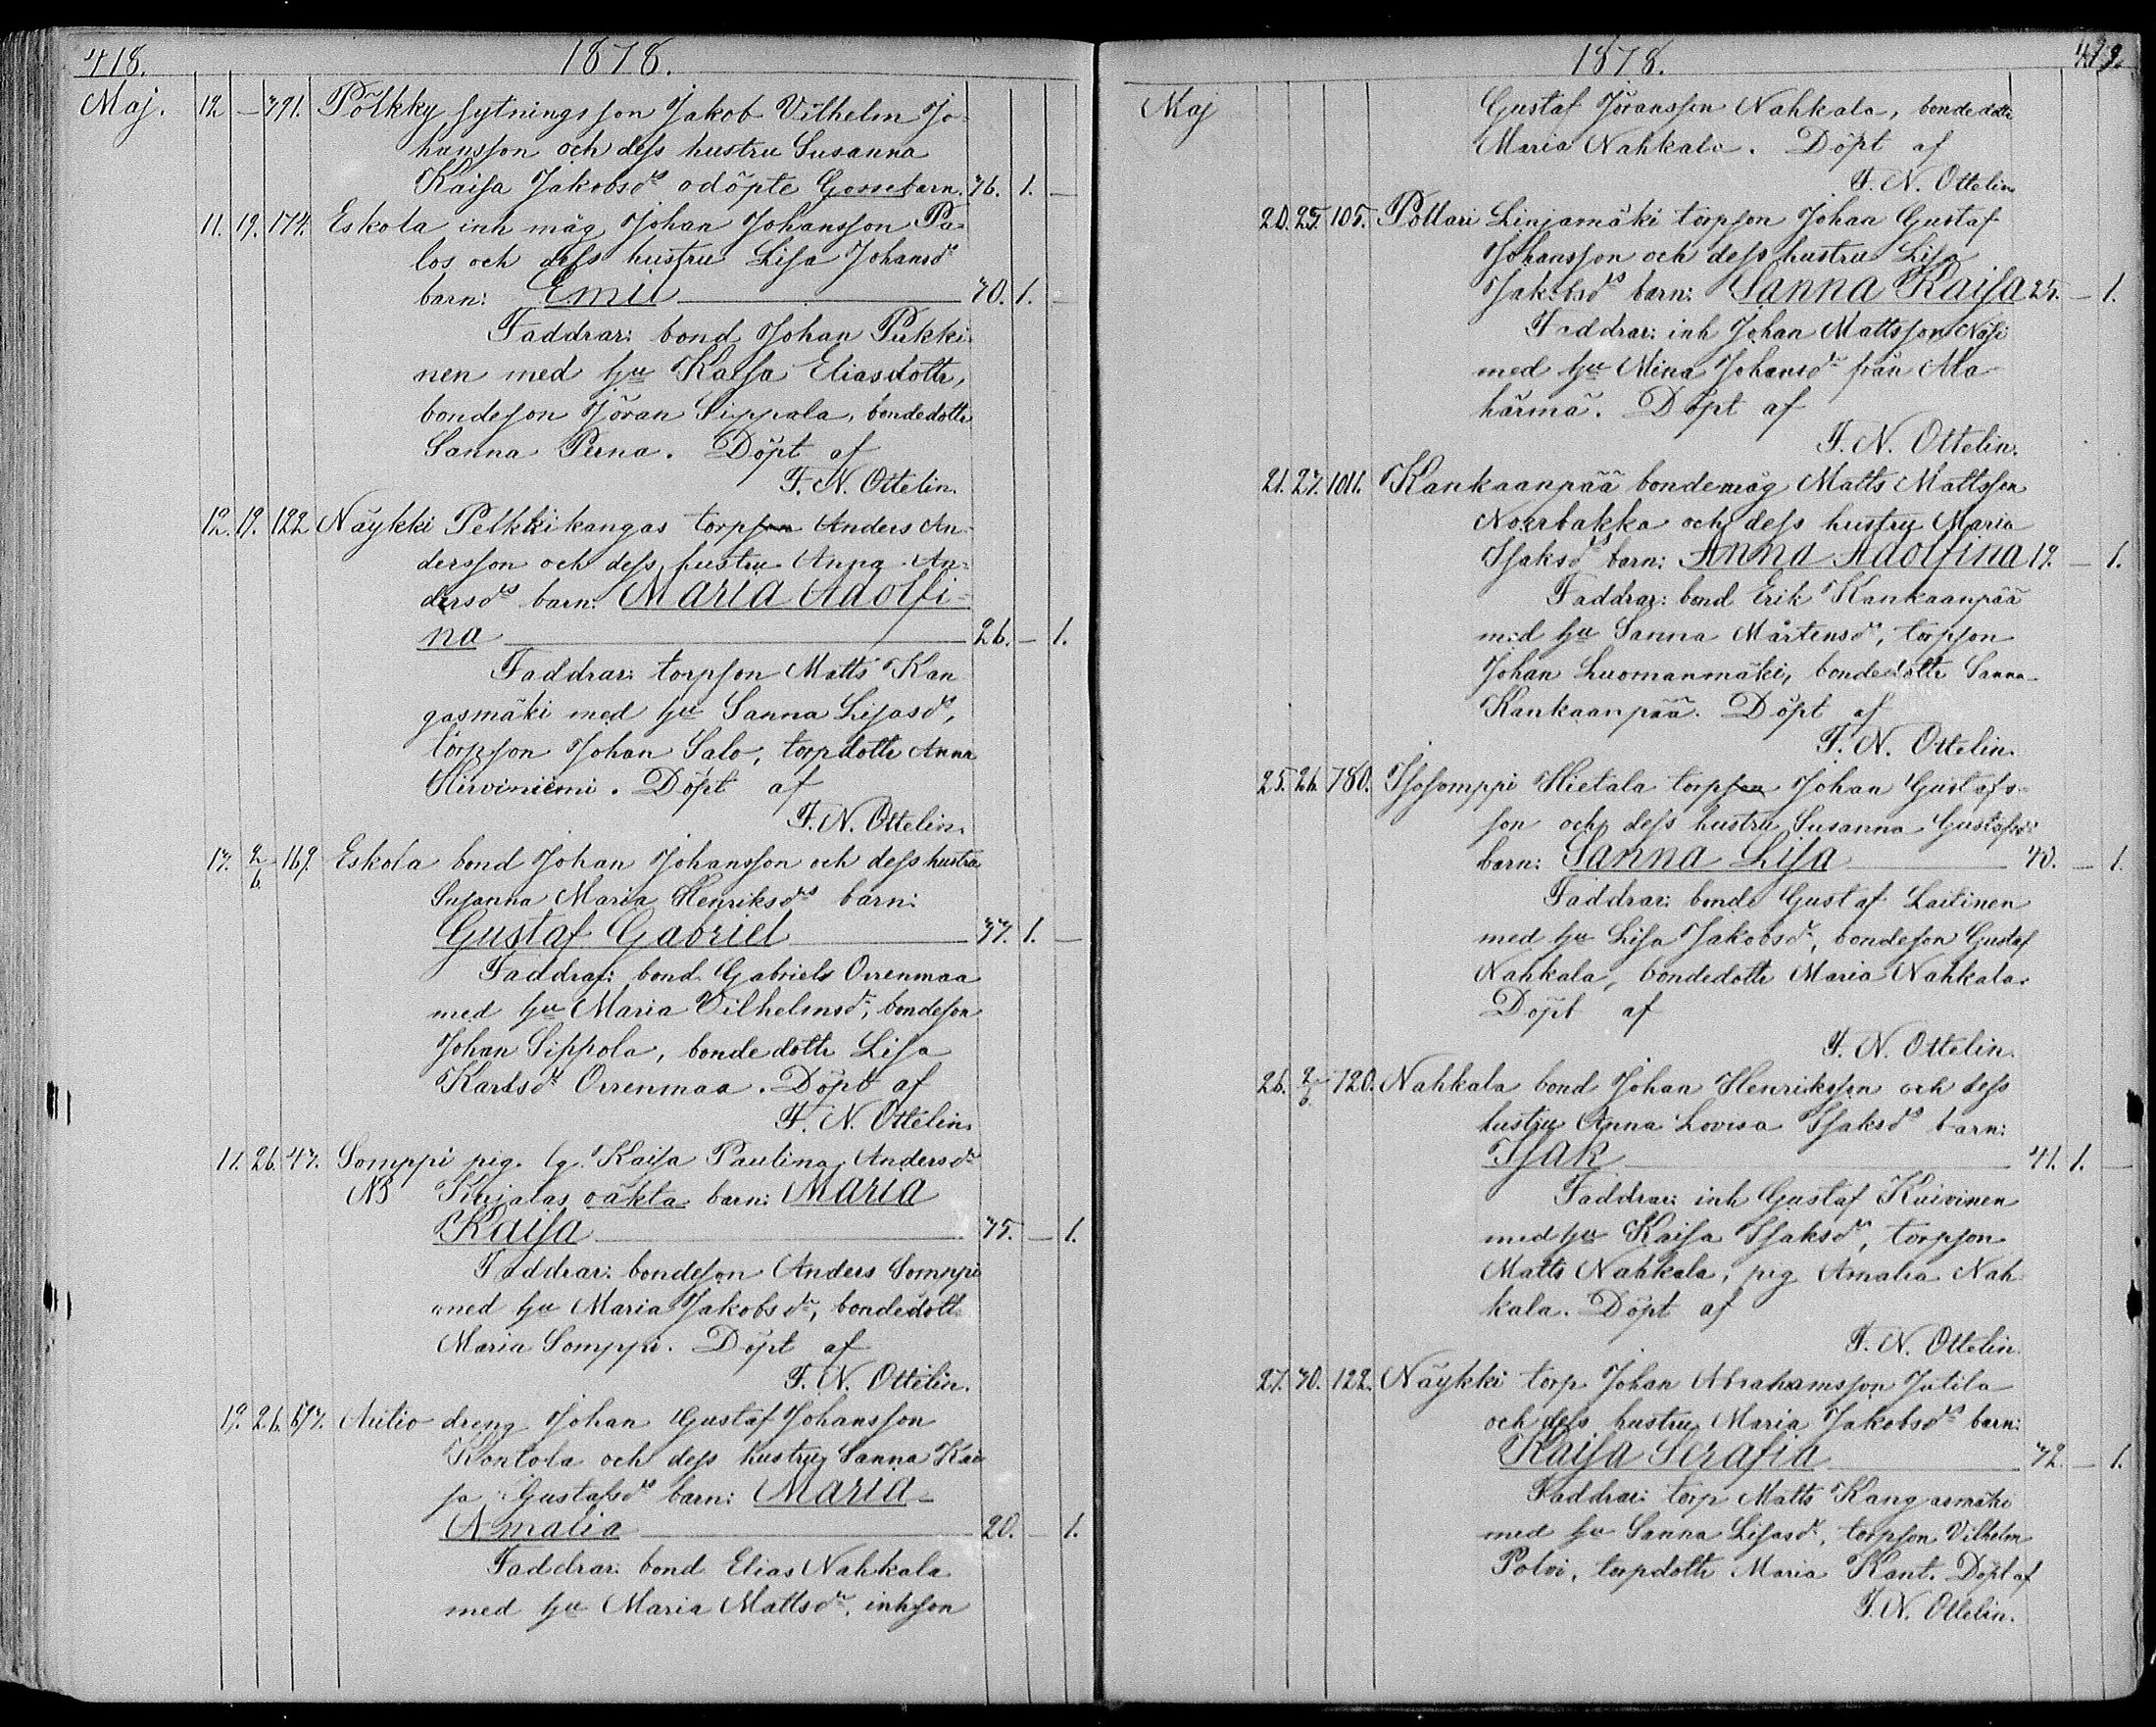 418. 1878.
Maj. 12 — 791. Pölkky sytningsson Jakob Vilhelm Jo-
hansson och dess hustru Susanna
Kaisa Jakobsds odöpte Gossebarn. 36. 1. —
11. 19. 174. Eskola inh måg Johan Johansson Pa-
los och dess hustru Lisa Johansds
barn: Emil 30. 1. —
Faddrar: bond Johan Pukki-
nen med hu Kaisa Eliasdottr,
bondeson Jöran Sippola, bondedottr
Sanna Perna. Döpt af
F. N. Ottelin.
12. 19. 122 Näykki Pelkkikangas torpson Anders An-
dersson och dess hustru Anna An-
dersds barn: Maria Adolfi-
na 26. — 1.
Faddrar: torpson Matts Kan
gasmäki med hu Sanna Lisasdr,
torpson Johan Salo, torpdottr Anna
Hirviniemi. Döpt af
F. N. Ottelin.
17. 2/6 169. Eskola bond Johan Johansson och dess hustru
Susanna Maria Henriksds barn:
Gustaf Gabriel 37. 1. —
Faddrar: bond Gabriels Orrenmaa
med hu Maria Vilhelmsdr, bondeson
Johan Sippola, bondedottr Lisa
Karlsdr Orrenmaa. Döpt af
F. N. Ottelin.
11. 26. 47. Somppi pig. lg. Kaisa Paulina Andersdr
NB oäkta barn: Maria
Kaisa 35. — 1.
Faddrar: bondeson Anders Somppi
med hu Maria Jakobsdr, bondedottr
Maria Somppi. Döpt af
F. N. Ottelin.
19. 26. Autio dreng Johan Gustaf Johansson
Kontola och dess hustru Sanna Kai
sa Gustafsds barn: Maria
Amalia 20. — 1.
Faddrar: bond Elias Nahkala
med hu Maria Mattsdr, inhson
1878. 419.
Maj Gustaf Jöransson Nahkala, bondedottr
Maria Nahkala. Döpt af
F. N. Ottelin
20. 25. 105. Pottari Linjamäki torpson Johan Gustaf
Johansson och dess hustru Lisa
Jakobsds barn: Sanna Kaisa 25. — 1.
Faddrar: inh Johan Mattsson Näsi
med hu Mina Johansdr från Ala-
härmä. Döpt af
F. N. Ottelin.
21. 27. 1011. Kankaanpää bondemåg Matts Mattsson
Norrbakka och dess hustru Maria
Isaksds barn: Anna Adolfina 19. — 1.
Faddrar: bond Erik Kankaanpää
med hu Sanna Mårtensdr, torpson
Johan Luomanmäki, bondedottr Sanna
Kankaanpää. Döpt af
F. N. Ottelin.
25. 26. 780. Isosomppi Hietala torpson Johan Gustafs-
son och dess hustru Susanna Gustafsds
barn: Sanna Lisa 40. — 1.
Faddrar: bonde Gustaf Laitinen
med hu Lisa Jakobsdr, bondeson Gustaf
Nahkala, bondedottr Maria Nahkala
Döpt af
F. N. Ottelin.
26. 2/6. 720. Nahkala bond Johan Henriksson och dess
hustru Anna Lovisa Isaksds barn:
Isak 41. 1. —
Faddrar: inh Gustaf Kuivinen
med hu Kaisa Isaksdr, torpson
Matts Nahkala, pig Amalia Nah
kala. Döpt af
F. N. Ottelin.
27. 30. 122. Näykki torp Johan Abrahamsson Jutila
och dess hustru Maria Jakobsds barn:
Kaisa Serafia 32. — 1.
Faddrar: torp Matts Kangasmäki
med hu Sanna Lisasdr, torpson Vilhelm
Polvi, torpdottr Maria Kant. Döpt af
F. N. Ottelin.